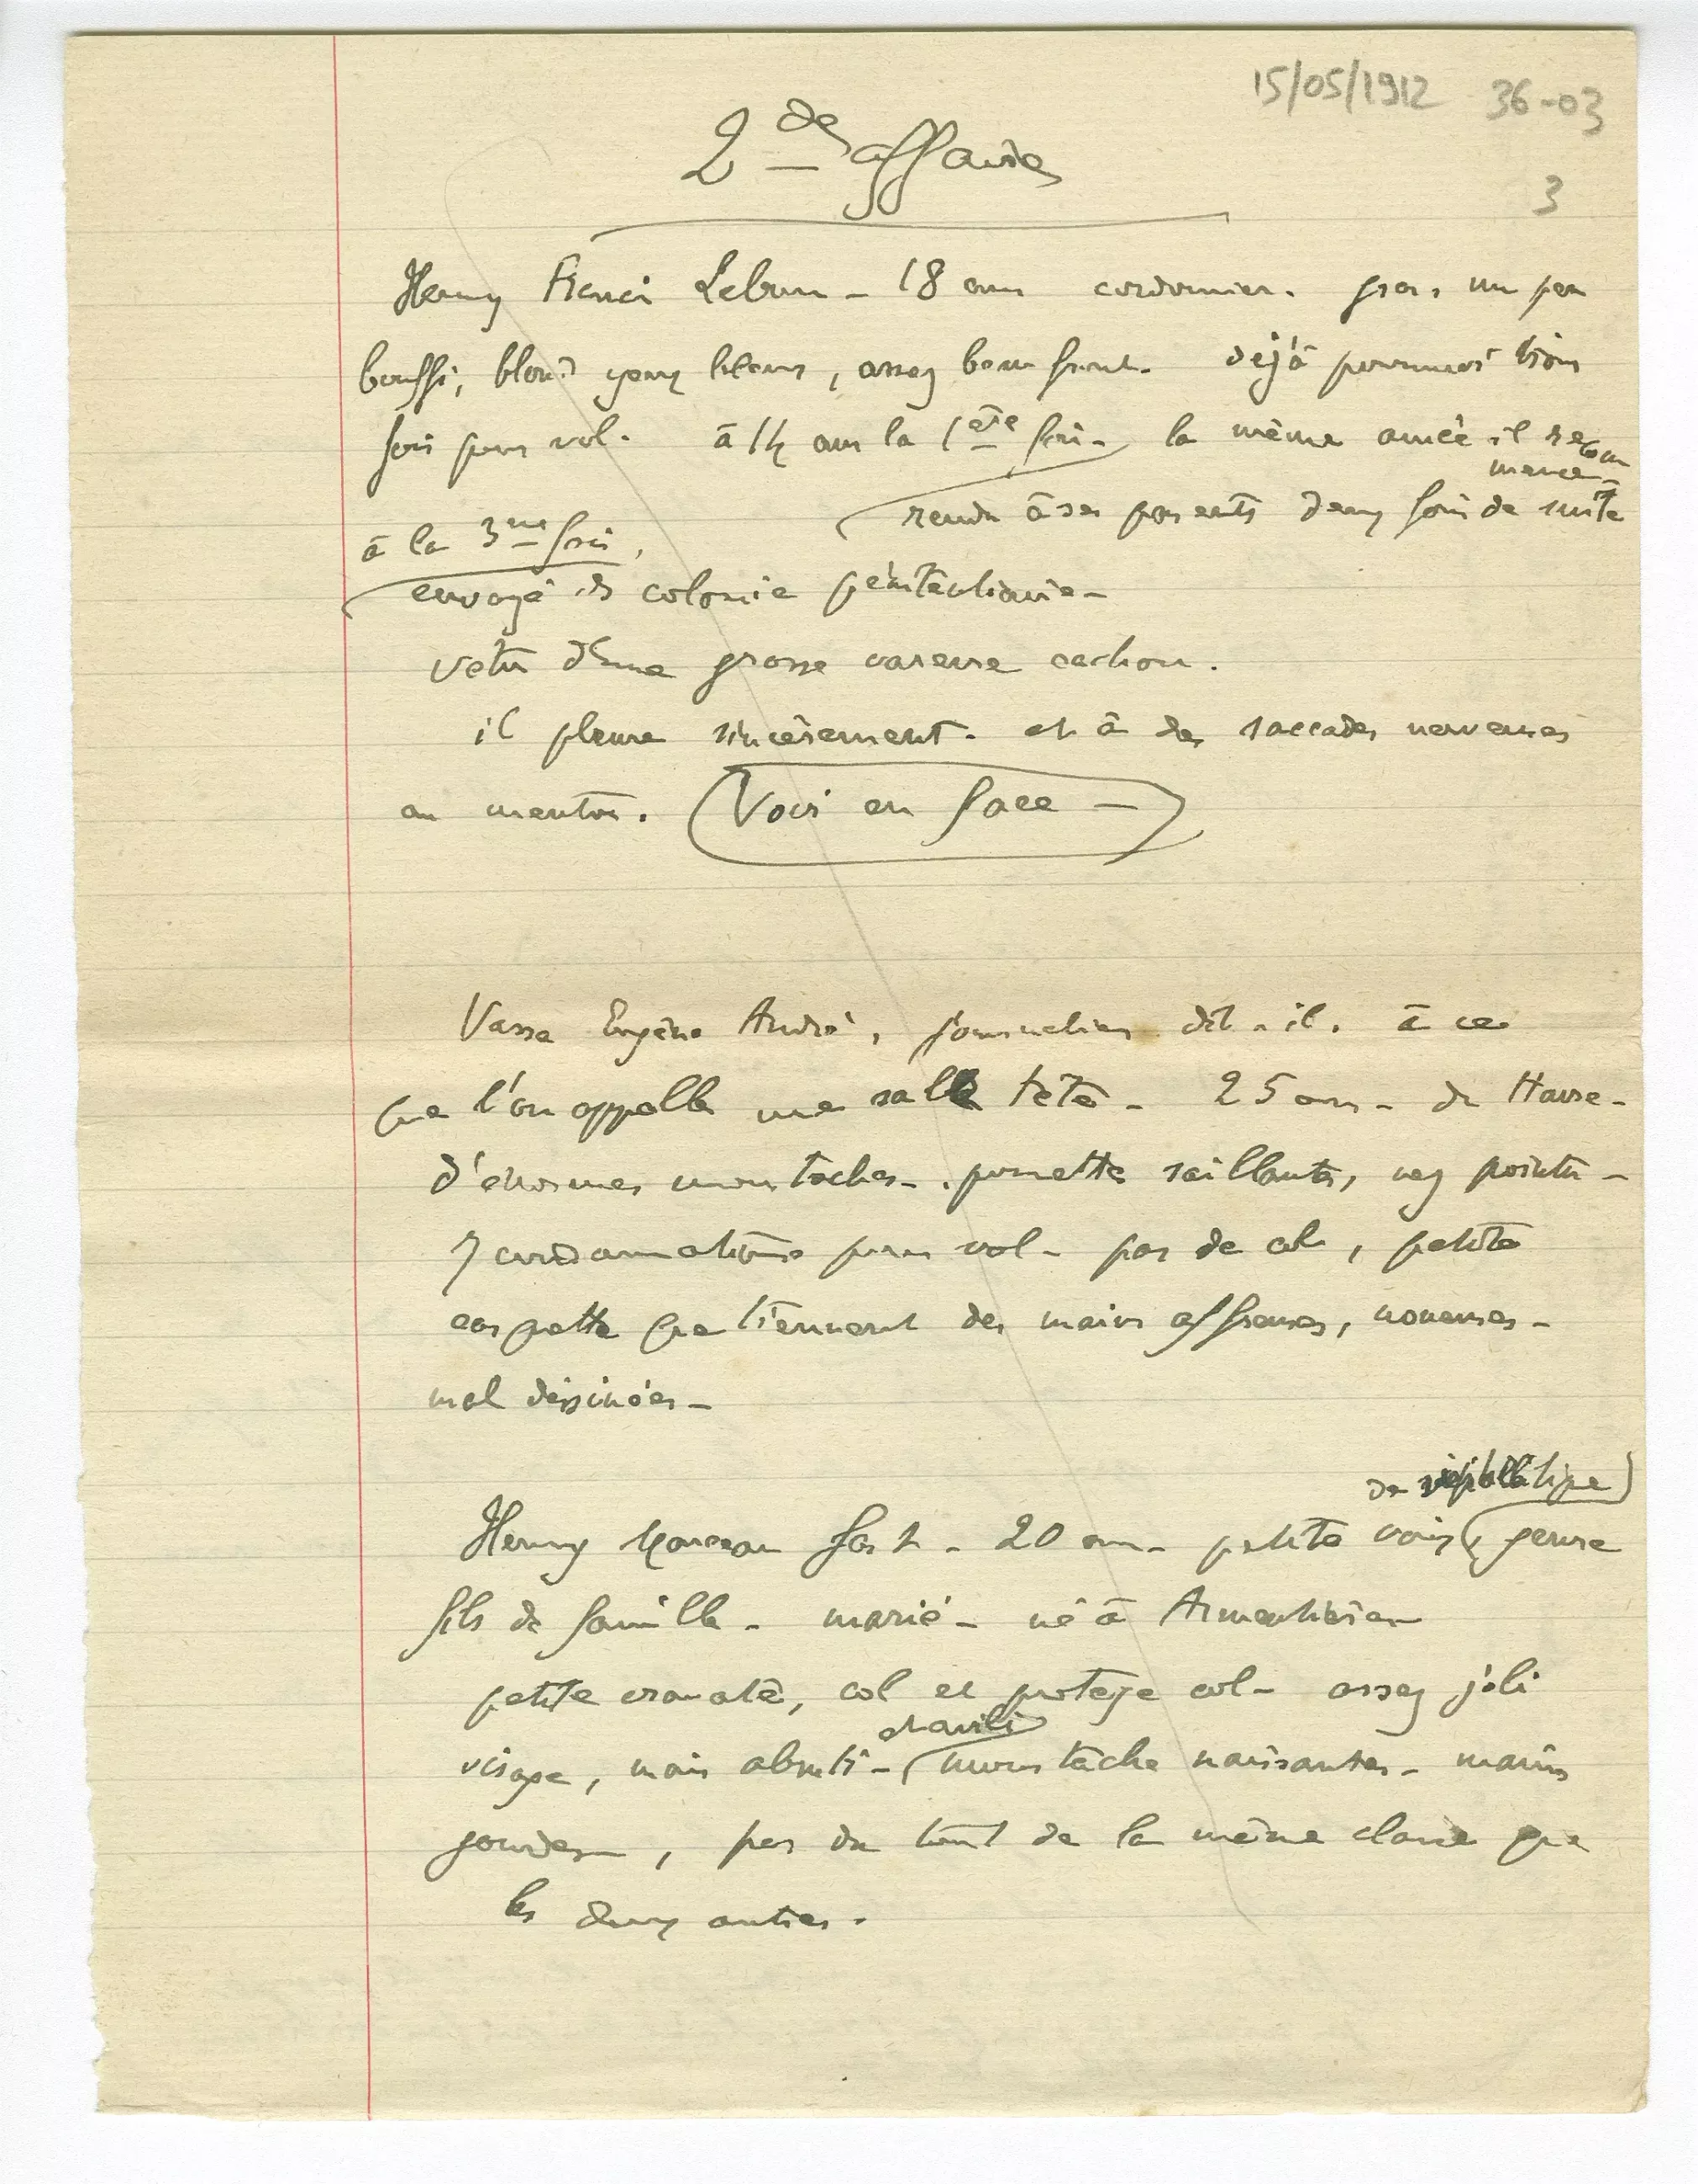 15/05/1912 36-03
3
2de affaire
Henry Lebrun - 18 ans cordonnier. gros, un peu
bouffi, blond yeux bleus, assez beau front. déjà poursuivi trois
fois pour vol. à 14 ans la 1ère fois - la même année il recom
mence -
rendu à ses parents deux fois de suite
à la 3me fois,
envoyé en colonie pénitentiaire -
vetu d'une grosse vareuse cachou.
il pleure sincèrement. et a des saccades nerveuses
au menton. (Voir en face -
Vasse Eugène André, journalier dit-il. a ce
que l'on appelle une sale tête - 25 ans - du Havre -
d'énormes moustaches - pomette saillantes, nez pointu -
7 condamnations pour vol - pas de col, petite
casquette que tiennent des mains affreuses, noueuses -
mal dessinées -
de
Henry Marceau - 20 ans - petite voix, genre
fils de famille - marié - né à Armentières
petite cravate, col et protège col - assez joli
et avili
visage, mais abruti - moustache naissantes - mains
gourdes, pas du tout de la même classe que
les deux autres.